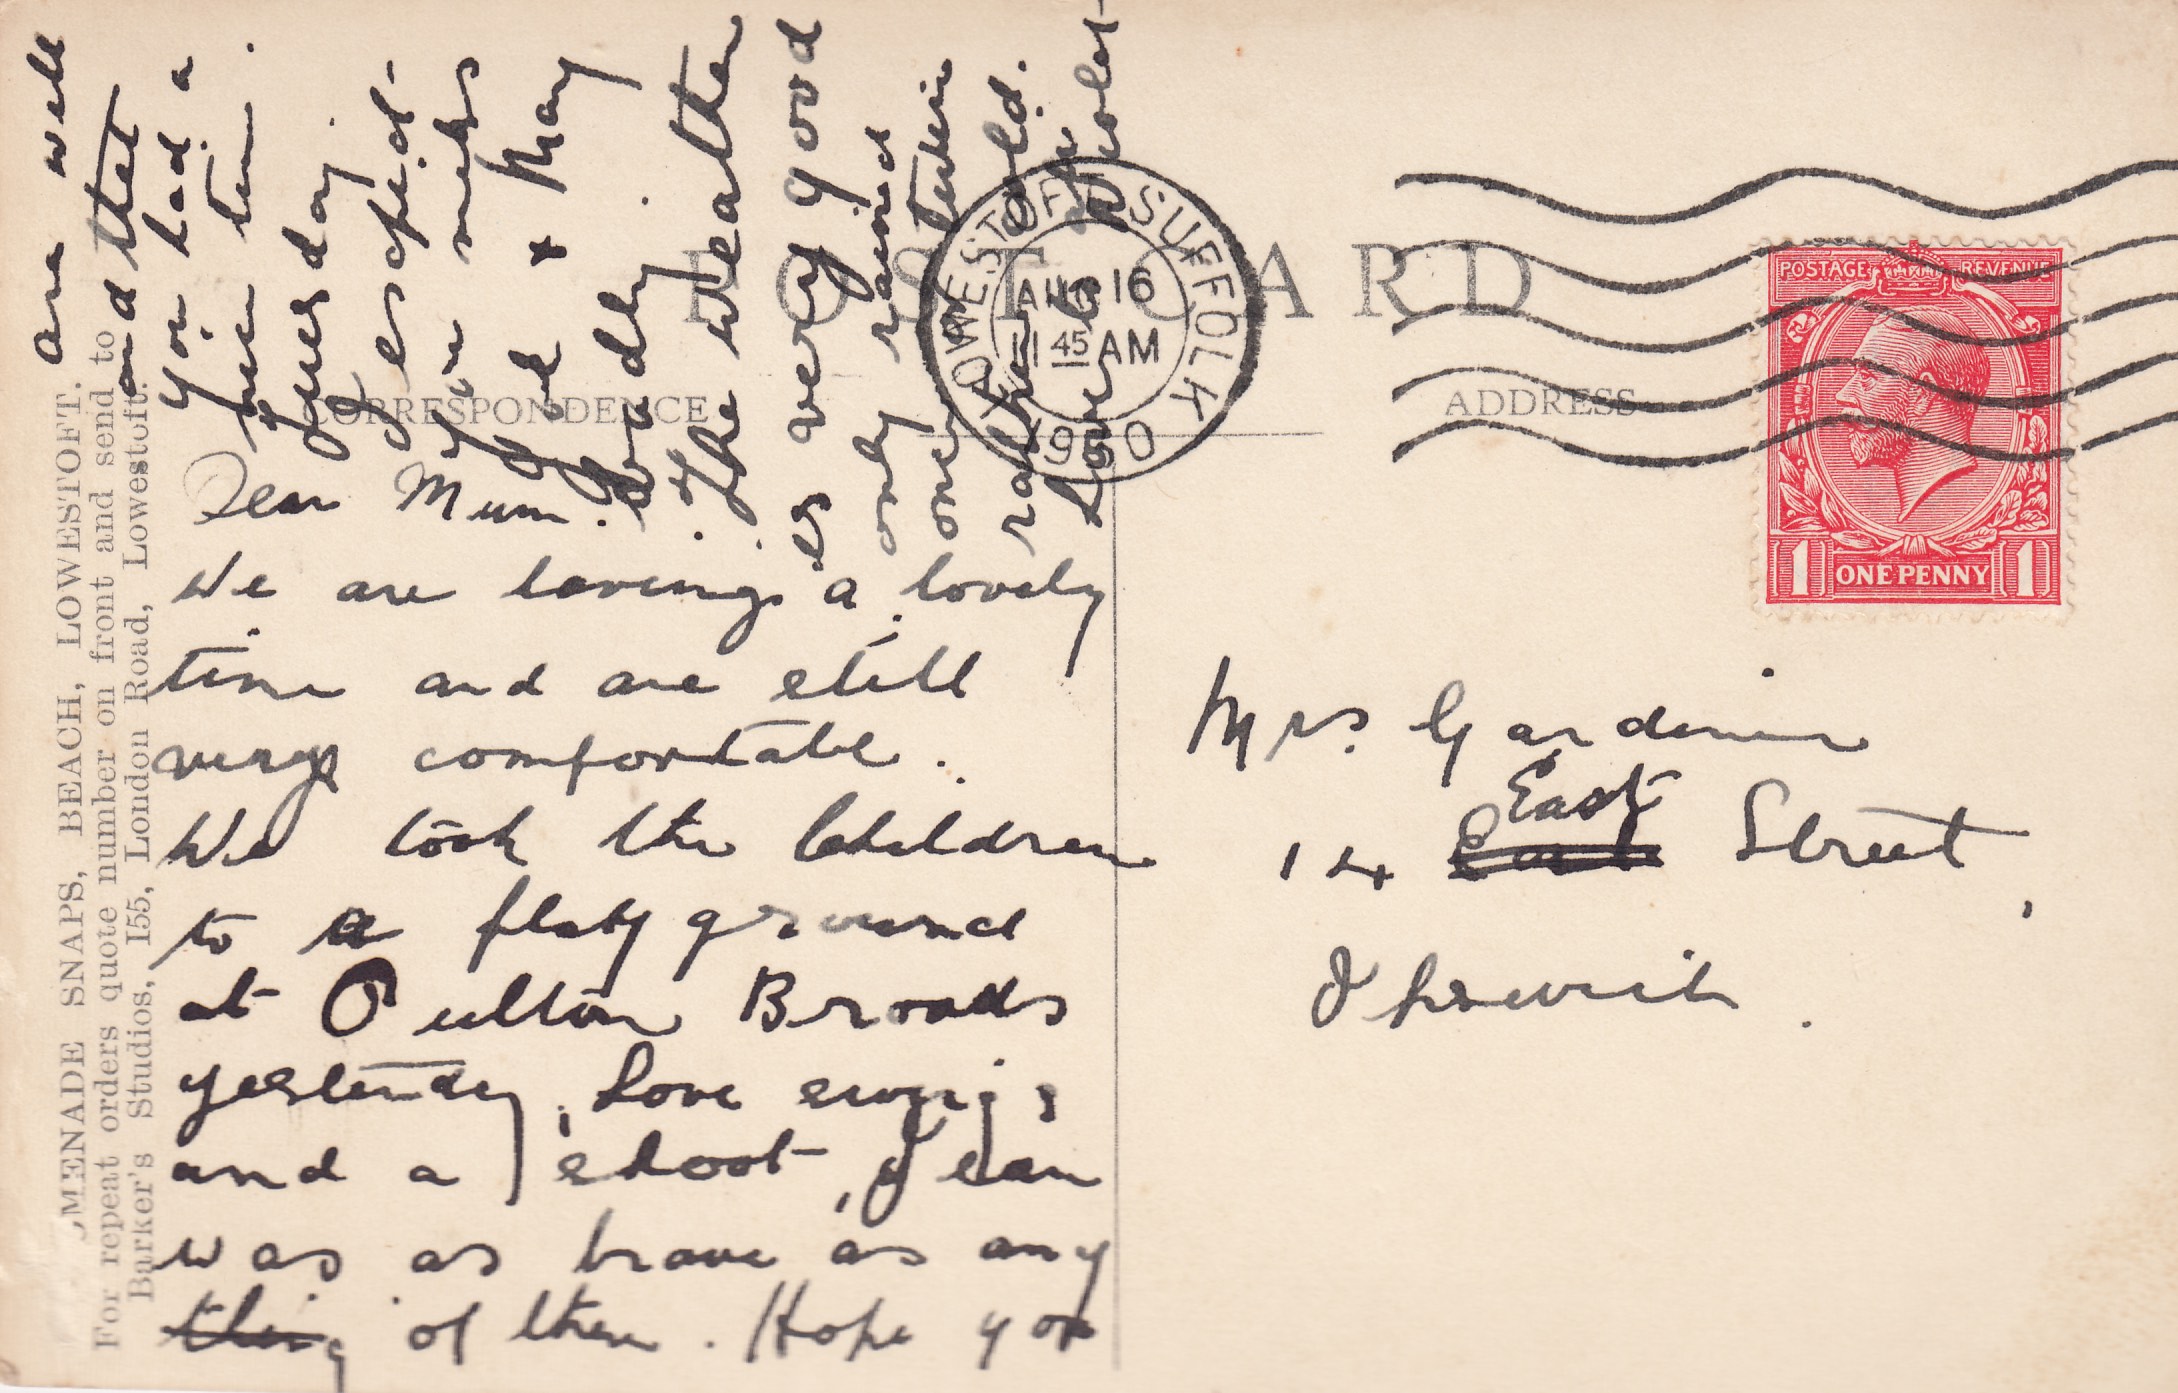 POST CARD
CORRESPONDENCE
ADDRESS
LOWESTOFT SUFFOLK
AUG 16
11 45 AM
1930
POSTAGE REVENUE
1 ONE PENNY 1
MENADE SNAPS, BEACH, LOWESTOFT.
For repeat orders quote number on front and send to
Barker's Studios, 155, London Road, Lowestoft.
Dear Mum.
We are having a lovely
time and are still
very comfortable.
We took the Children
to a play ground
at Oulton Broads
yesterday, Love swings
and a shoot, Jean
was as brave as any
thing of them. Hope you
are well
and that
you had a
fine time
Tuesday.
I expect
you miss
& May
badly.
The weather
is very good
only rained
once
rather cold.
Love to
Violet
Mrs. Gardiner
East
14 Street,
Ipswich.